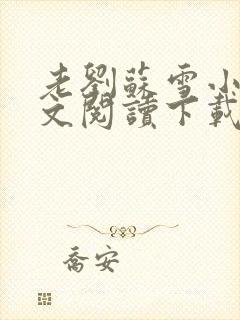 老劉蘇雪小
文閱讀下載
喬安